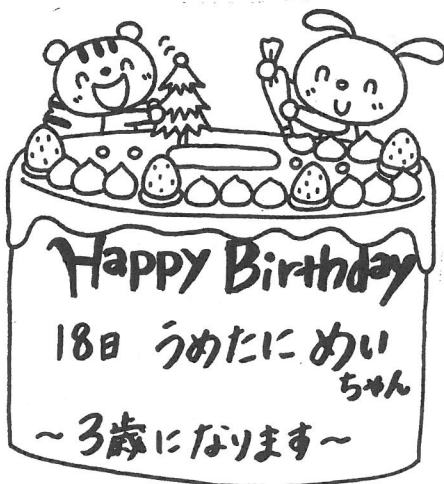 Happy Birthday
18日 うめたに めい
ちゃん
～3歳になります～